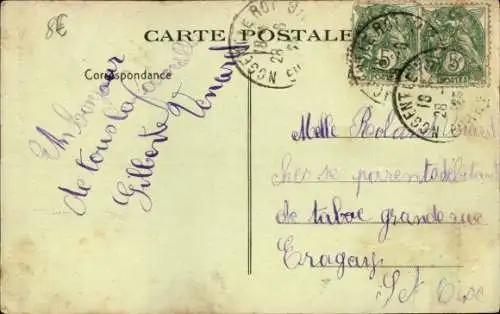 8€
CARTE POSTALE
Correspondance
Un bonjour
de tous la famille
Gilberte Venaret
NOGENT-LE-ROI
18
28
NOGENT-LE-ROI
18
28
5
POSTES
5
POSTES
Melle Roland
Chez se parents débitant
de tabac grande rue
Eragny
S et Oise